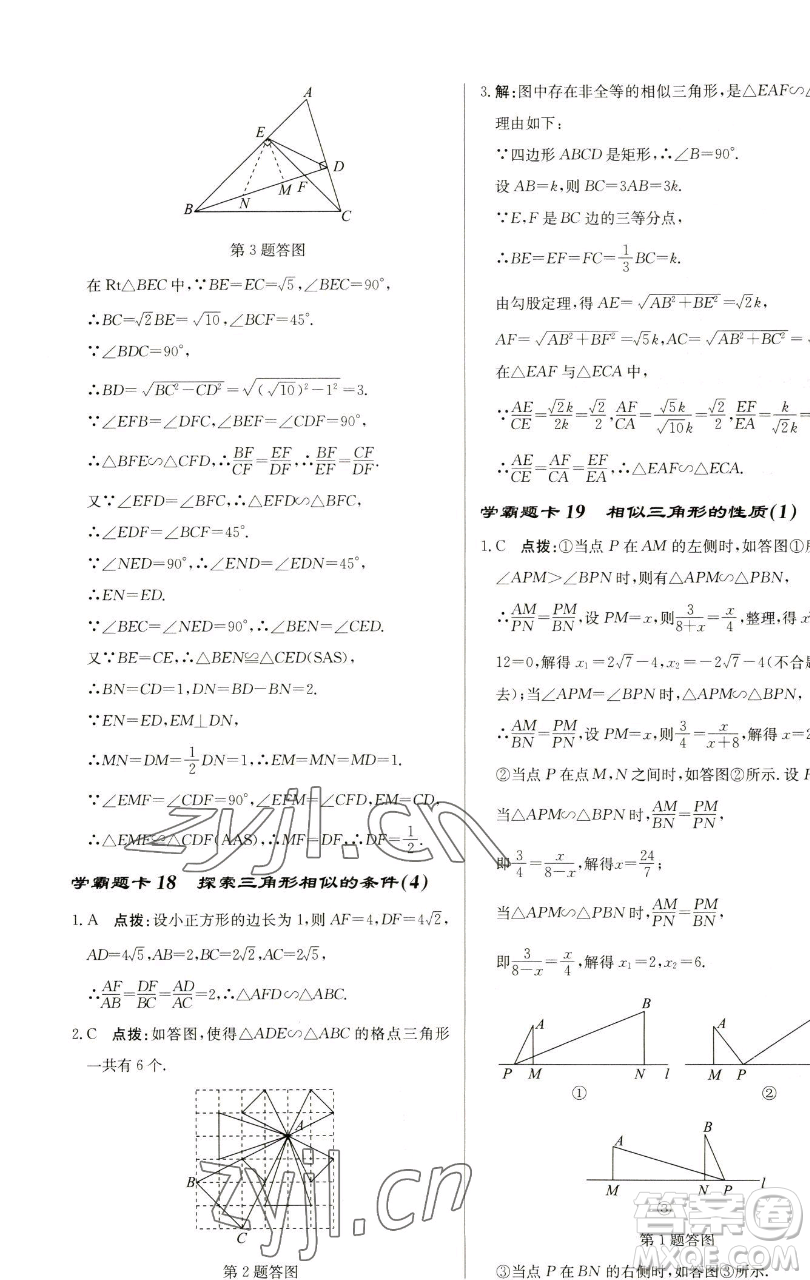 A
E
D
F
M
N
B
C
第3题答图
在Rt△BEC中,∵BE=EC=√5,∠BEC=90°,
∴BC=√2BE=√10,∠BCF=45°.
∵∠BDC=90°,
∴BD=√(BC²-CD²)=√((√10)²-1²)=3.
∵∠EFB=∠DFC,∠BEF=∠CDF=90°,
∴△BFE∽△CFD,∴BF/CF=EF/DF,∴BF/EF=CF/DF.
又∵∠EFD=∠BFC,∴△EFD∽△BFC,
∴∠EDF=∠BCF=45°.
∵∠NED=90°,∴∠END=∠EDN=45°,
∴EN=ED.
∵∠BEC=∠NED=90°,∴∠BEN=∠CED.
又∵BE=CE,∴△BEN≌△CED(SAS),
∴BN=CD=1,∴DN=BD-BN=2.
∵EN=ED,EM⊥DN,
∴MN=DM=1/2DN=1,∴EM=MN=MD=1.
∵∠EMF=∠CDF=90°,∠EFM=∠CFD,EM=CD,
∴△EMF≌△CDF(AAS),∴MF=DF,∴DF=1/2.
学霸题卡18 探索三角形相似的条件(4)
1.A 点拨:设小正方形的边长为1,则AF=4,DF=4√2,
AD=4√5,AB=2,BC=2√2,AC=2√5,
∴AF/AB=DF/BC=AD/AC=2,∴△AFD∽△ABC.
2.C 点拨:如答图,使得△ADE∽△ABC的格点三角形
一共有6个.
A
B
C
第2题答图
3.解:图中存在非全等的相似三角形,是△EAF∽△
理由如下:
∵四边形ABCD是矩形,∴∠B=90°.
设AB=k,则BC=3AB=3k.
∵E,F是BC边的三等分点,
∴BE=EF=FC=1/3BC=k.
由勾股定理,得AE=√(AB²+BE²)=√2k,
AF=√(AB²+BF²)=√5k,AC=√(AB²+BC²)=
在△EAF与△ECA中,
∵AE/CE=√2k/2k=√2/2,AF/CA=√5k/√10k=√2/2,EF/EA=k/
∴AE/CE=AF/CA=EF/EA,∴△EAF∽△ECA.
学霸题卡19 相似三角形的性质(1)
1.C 点拨:①当点P在AM的左侧时,如答图①所
∠APM>∠BPN时,则有△APM∽△PBN,
∴AM/PN=PM/BN,设PM=x,则3/(8+x)=x/4,整理,得x
12=0,解得x₁=2√7-4,x₂=-2√7-4(不合题
去);当∠APM=∠BPN时,△APM∽△BPN,
∴AM/BN=PM/PN,设PM=x,则3/4=x/(x+8),解得x=2
②当点P在点M,N之间时,如答图②所示.设P
当△APM∽△BPN时,AM/BN=PM/PN,
即3/4=x/(8-x),解得x=24/7;
当△APM∽△PBN时,AM/PN=PM/BN,
即3/(8-x)=x/4,解得x₁=2,x₂=6.
A
B
P
M
N
l
①
A
M
P
②
A
B
M
N
P
l
③
第1题答图
③当点P在BN的右侧时,如答图③所示.
zyjl.cn
zyjl.cn
答案圈
MXQE.COM